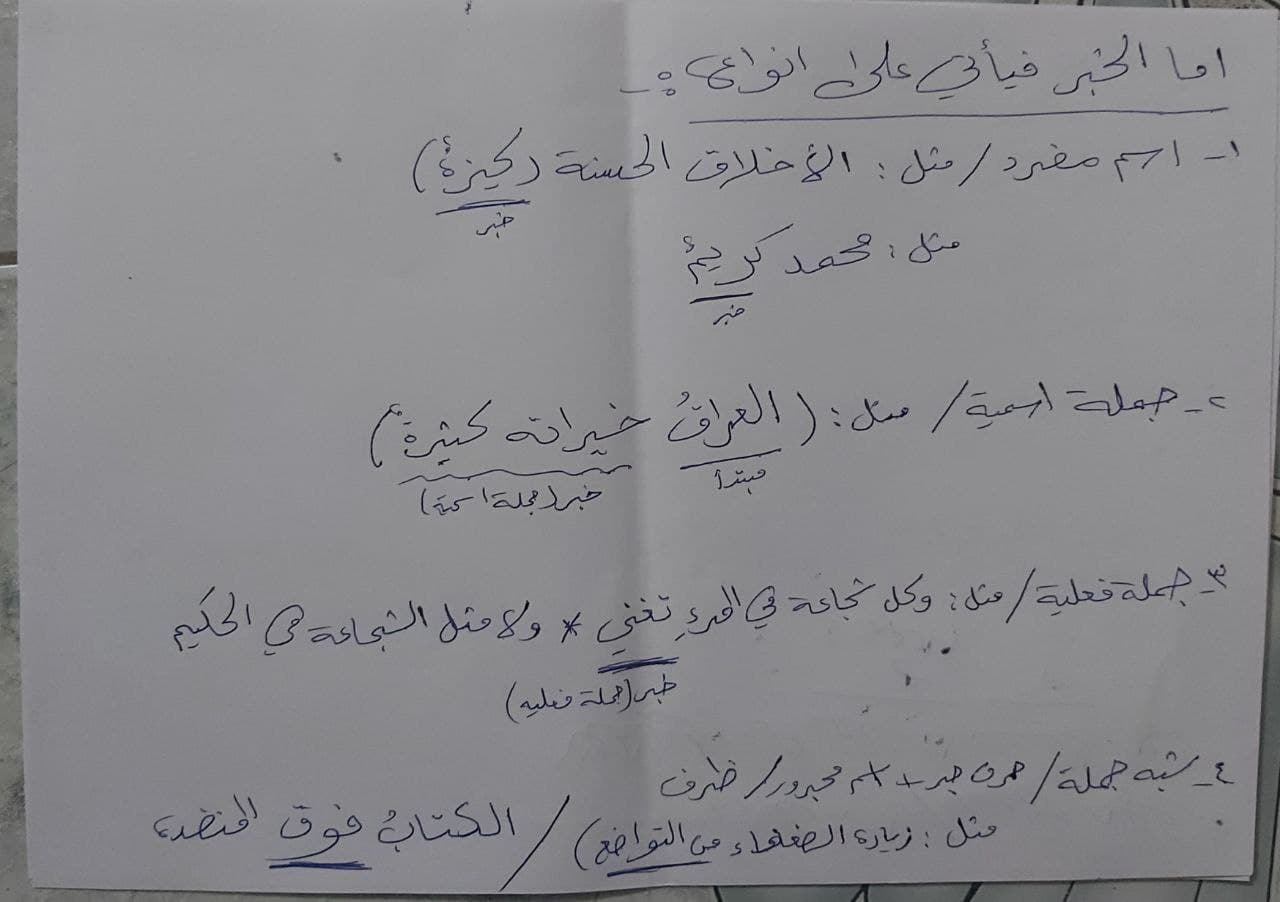 اما الخبر فيأتي على انواع :-
١- اسم مفرد / مثل : الأخلاق الحسنة (كنيزةٌ)
خبر
مثل : محمد كريمٌ
خبر
٢- جملة اسمية / مثل : (العراقُ خيراته كثيرةٌ)
مبتدأ خبر (جملة اسمية)
٣- جملة فعلية / مثل : وكل شجاعة في المرءِ تغني * ولا مثل الشجاعة في الحكيم
خبر (جملة فعليه)
٤- شبه جملة / حرف جر + اسم مجرور / ظرف
مثل : زيارة الضعفاء من التواضع) / الكتابُ فوق المنضدة